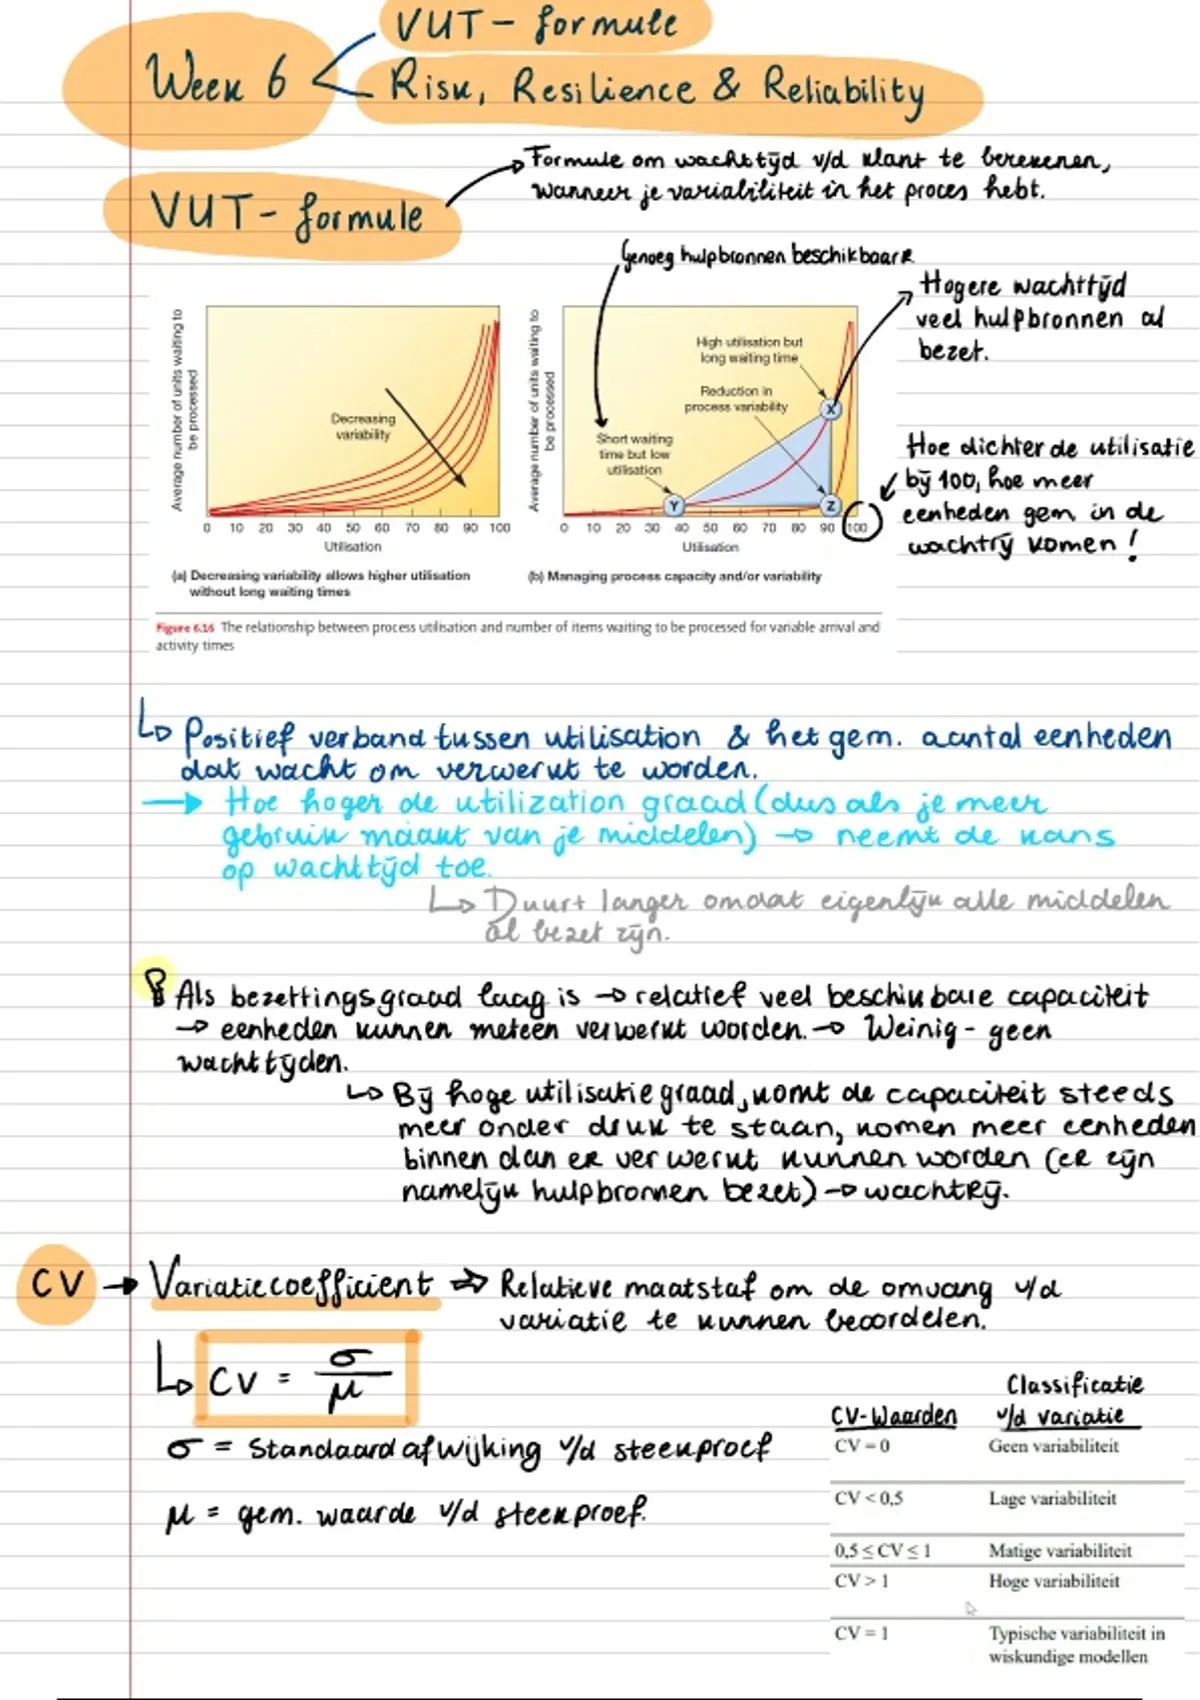 VUT - formule
Week 6
Risk, Resilience & Reliability
Formule om wachttijd v/d klant te berekenen,
wanneer je variabiliteit in het proces hebt.
VUT - formule
Genoeg hulpbronnen beschikbaar
Hogere wachttijd
veel hulpbronnen al
bezet.
Average number of units waiting to
be processed
Decreasing
variability
0 10 20 30 40 50 60 70 80 90 100
Utilisation
(a) Decreasing variability allows higher utilisation
without long waiting times
Average number of units waiting to
be processed
High utilisation but
long waiting time
Reduction in
process variability
Short waiting
time but low
utilisation
X
Y
Z
0 10 20 30 40 50 60 70 80 90 100
Utilisation
(b) Managing process capacity and/or variability
Hoe dichter de utilisatie
bij 100, hoe meer
eenheden gem in de
wachtrij komen!
Figure 6.16 The relationship between process utilisation and number of items waiting to be processed for variable arrival and
activity times
↳ Positief verband tussen utilisation & het gem. aantal eenheden
dat wacht om verwerkt te worden.
→ Hoe hoger de utilization graad (dus als je meer
gebruik maakt van je middelen) → neemt de kans
op wachttijd toe.
↳ Duurt langer omdat eigenlijk alle middelen
al bezet zijn.
Als bezettingsgraad laag is → relatief veel beschikbare capaciteit
→ eenheden kunnen meteen verwerkt worden. → Weinig - geen
wachttijden.
↳ Bij hoge utilisatiegraad, komt de capaciteit steeds
meer onder druk te staan, komen meer eenheden
binnen dan er verwerkt kunnen worden (er zijn
namelijk hulpbronnen bezet) → wachtrij.
CV → Variatiecoefficient ⇒ Relatieve maatstaf om de omvang v/d
variatie te kunnen beoordelen.
↳ CV = σ/μ
σ = Standaard afwijking v/d steekproef
μ = gem. waarde v/d steekproef.
Classificatie
CV-Waarden v/d variatie
CV = 0 Geen variabiliteit
CV < 0,5 Lage variabiliteit
0,5 ≤ CV ≤ 1 Matige variabiliteit
CV > 1 Hoge variabiliteit
CV = 1 Typische variabiliteit in
wiskundige modellen